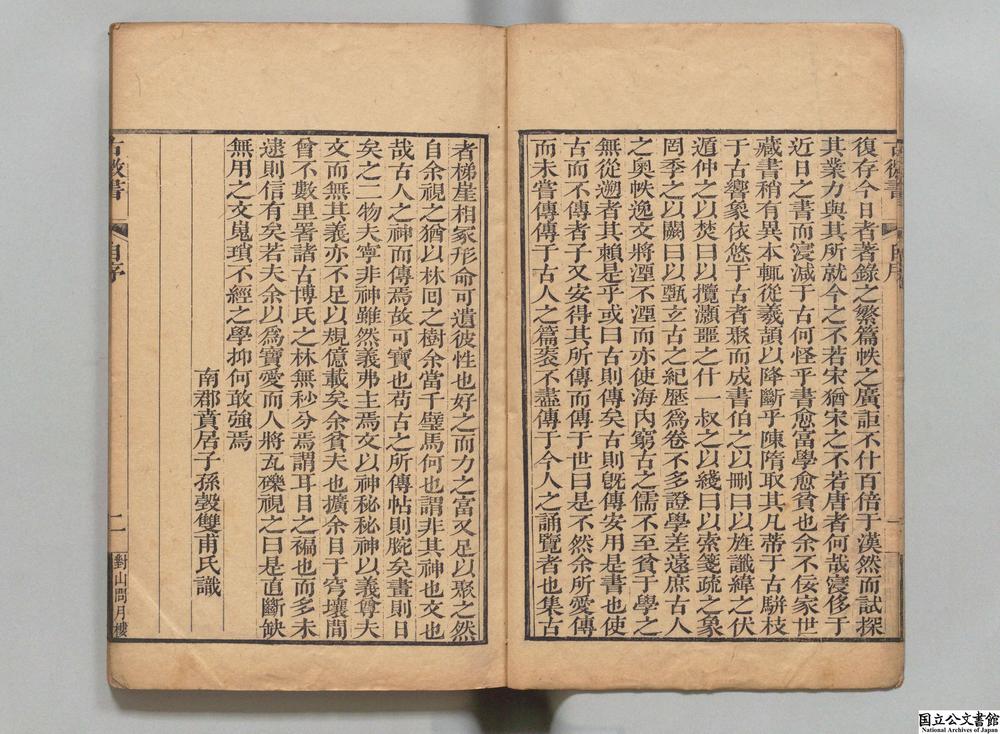 復存今日者著錄之繁篇帙之廣詎不什百倍于漢然而試探
其業力與其所就今之不若宋猶宋之不若唐者何哉寖侈于
近日之書而寖減于古何怪乎書愈富學愈貧也余不佞家世
藏書稍有異本輒從羲頡以降斷乎陳隋取其凡蒂于古駢枝
于古響象依悠于古者聚而成書伯之以刪曰以旌讖緯之伏
遁仲之以焚曰以攬灝噩之什一叔之以綫曰以索箋疏之象
罔季之以闕曰以甄玄古之紀歷爲卷不多證學差遠庶古人
之奧帙逸文將湮不湮而亦使海內窮古之儒不至貧于學之
無從遡者其賴是乎或曰古則傳矣古則旣傳安用是書也使
古而不傳者子又安得其所傳而傳于世曰是不然余所愛傳
而未嘗傳傳于古人之篇袠不盡傳于今人之誦覽者也集古
古微書
自序
一
者梯崖相冢形命可遺彼性也好之而力之富又足以聚之然
自余視之猶以林回之樹余當千璧馬何也謂非其神也文也
哉古人之神而傳焉故可寶也苟古之所傳帖則腕矣畫則目
矣之二物夫寧非神雖然義弗主焉文以神秘秘神以義尊夫
文而無其義亦不足以規億載矣余貧夫也擴余目于穹壤間
曾不數里署諸古博氏之林無秒分焉謂耳目之褊也而多未
逮則信有矣若夫余以爲寶愛而人將瓦礫視之曰是直斷缺
無用之文嵬瑣不經之學抑何敢強焉
南郡賁居子孫瑴雙甫氏識
古微書
自序
二
對山問月樓
国立公文書館
National Archives of Japan